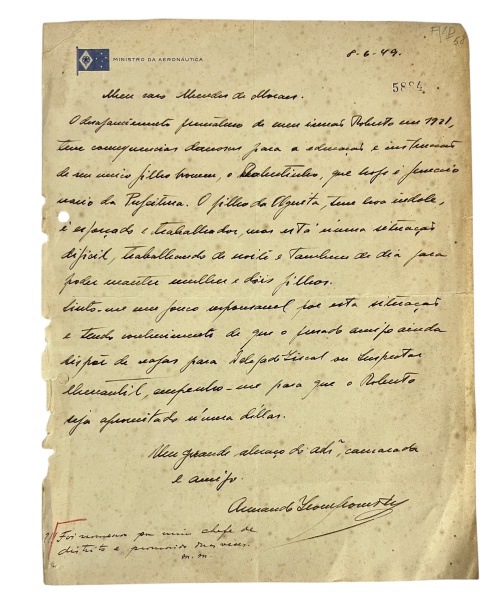 MINISTRO DA AERONÁUTICA
8-6-49.
5884
Meu caro Mendes de Moraes.
O desaparecimento prematuro de meu irmão Roberto em 1921,
teve consequencias danosas para a educação e instrucção
de seu unico filho homem, o Robertinho, que hoje é funccio
nario da Prefeitura. O filho do tem boa indole,
é esforçado e trabalhador, mas está n'uma situação
dificil, trabalhando de noite e tambem de dia para
poder manter mulher e dois filhos.
Sinto-me um pouco responsavel por esta situação
e tendo conhecimento de que o prezado amigo ainda
dispõe de vagas para Delegado Fiscal ou Inspector
Mercantil, empenho-me para que o Roberto
seja aproveitado n'uma déllas.
Um grande abraço do camarada
e amigo.
Armando Trompowsky
Foi nomeado por mim chefe de
districto e promovido
m.m